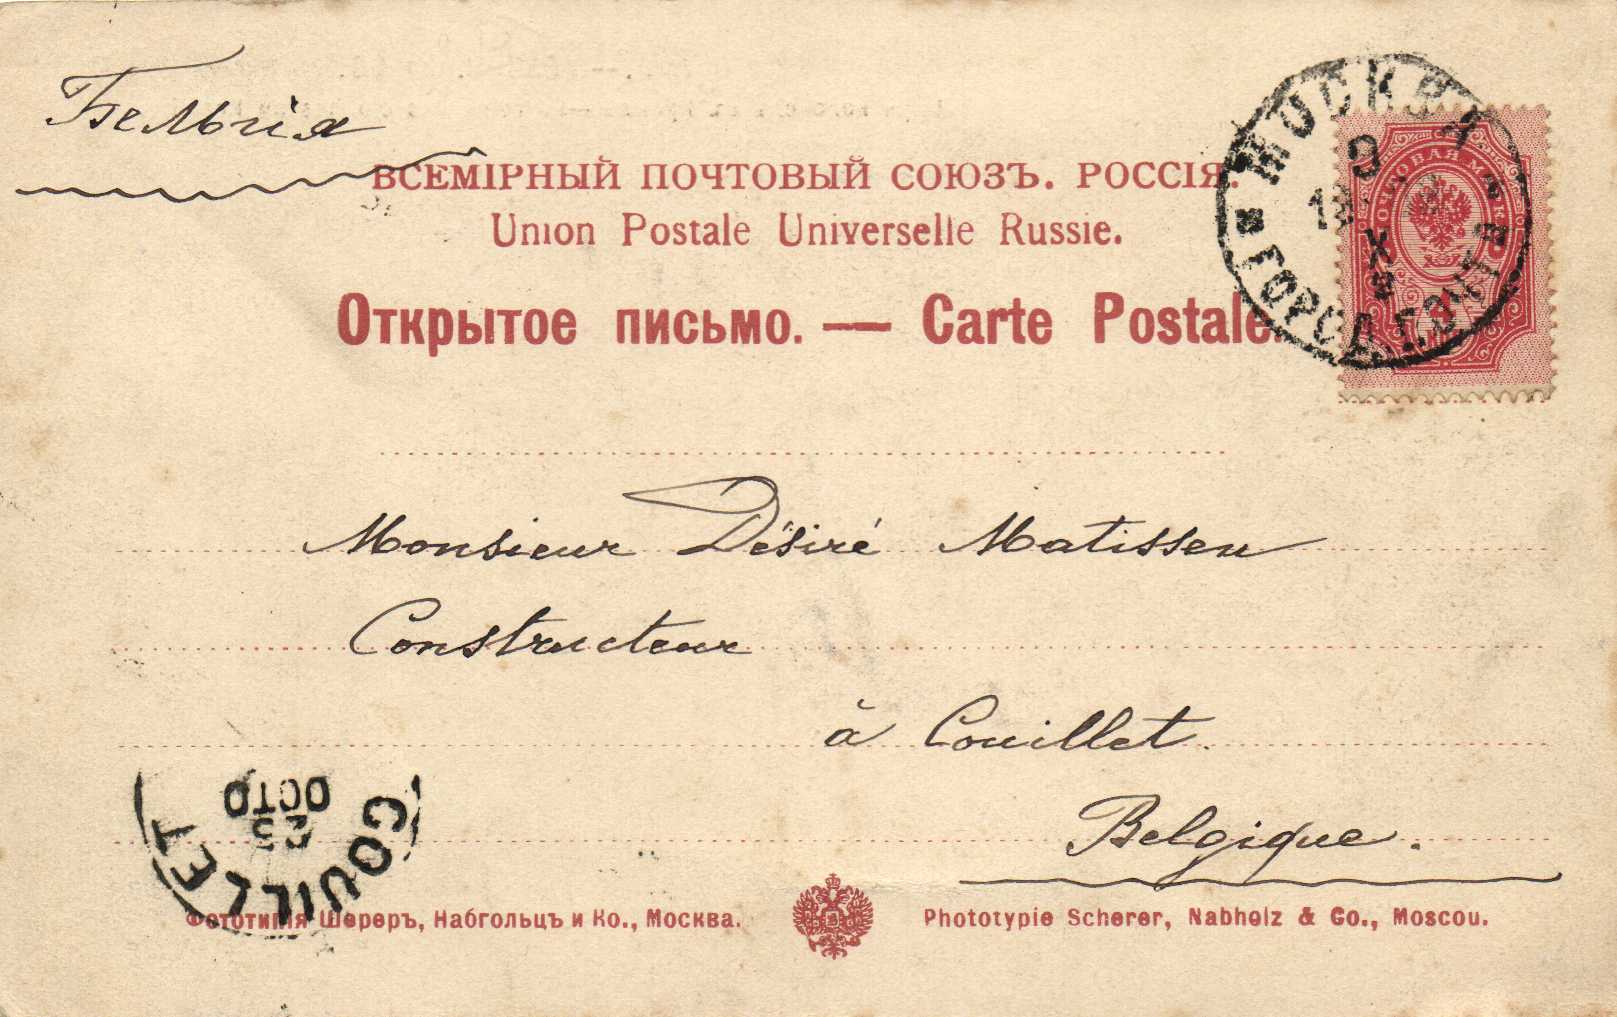 Бельгія
ВСЕМІРНЫЙ ПОЧТОВЫЙ СОЮЗЪ. РОССІЯ.
Union Postale Universelle Russie.
Открытое письмо. — Carte Postale.
МОСКВА
ГОРОД. ПОЧТ
Monsieur Désiré Matissen
Constructeur
à Couillet
Belgique.
COUILLET
OCTO
Фототипія Шереръ, Набгольцъ и Ко., Москва.
Phototypie Scherer, Nabholz & Co., Moscou.